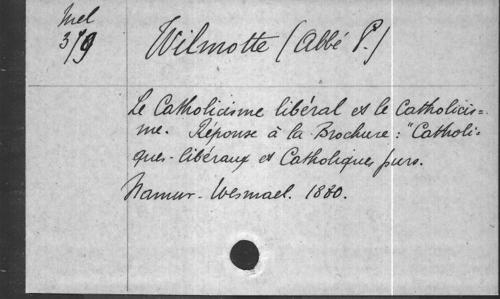 Mel
3/9
Wilmotte (Abbé P.)
Le Catholicisme libéral et le Catholicis=
me. Réponse à la Brochure: "Catholi-
ques-libéraux et Catholiques purs.
Namur-Wesmael. 1880.